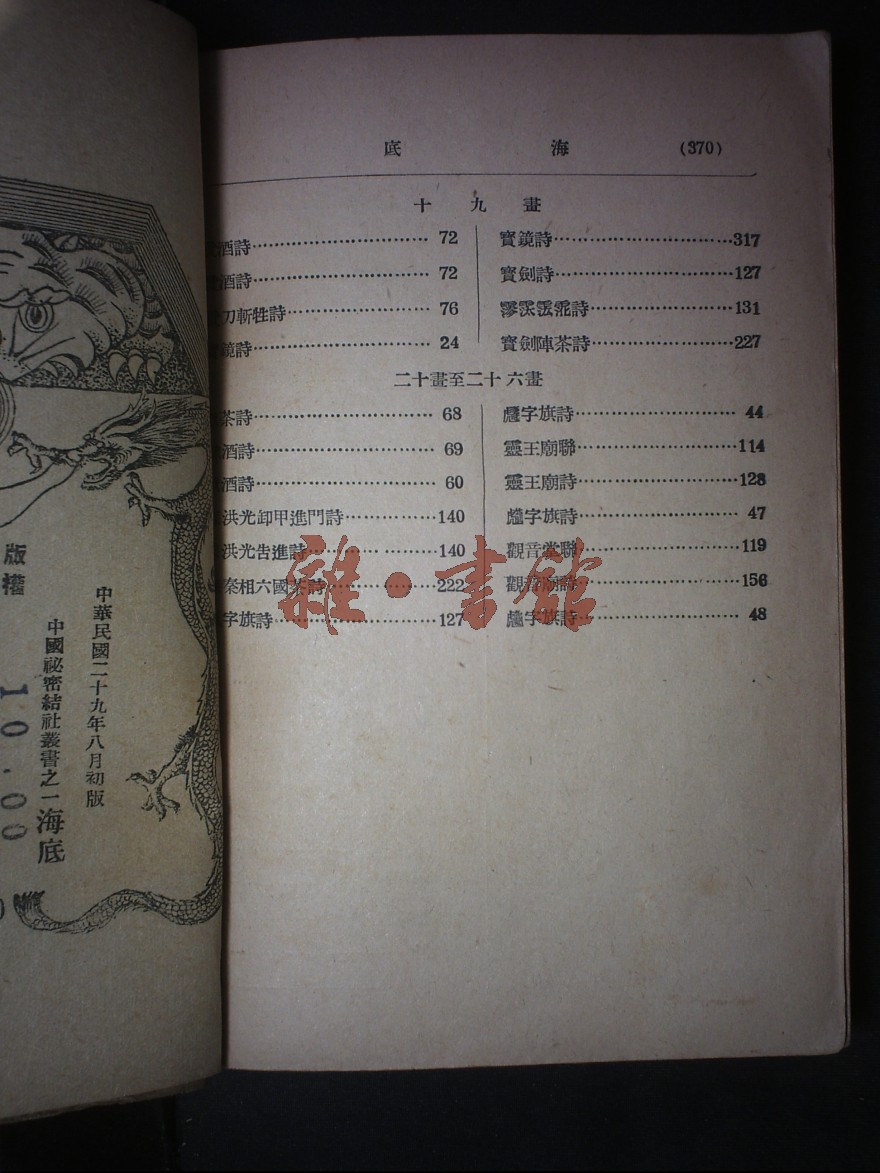 底 海 (370)
十九畫
酒詩 72
酒詩 72
刀斬牲詩 76
鏡詩 24
寶鏡詩 317
寶劍詩 127
詩 131
寶劍陣茶詩 227
二十畫至二十六畫
茶詩 68
酒詩 69
酒詩 60
洪光卸甲進門詩 140
洪光告進詩 140
秦相六國茶詩 222
字旗詩 127
字旗詩 44
靈王廟聯 114
靈王廟詩 128
字旗詩 47
觀音堂聯 119
觀音廟詩 156
字旗詩 48
雜·書館
版權
中華民國二十九年八月初版
中國祕密結社叢書之一 海底
10.00